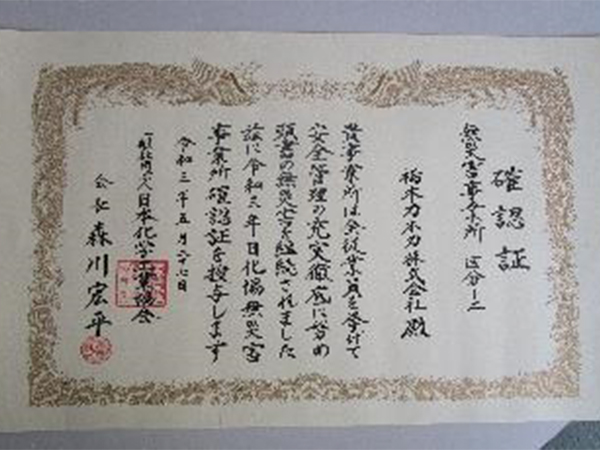 確認証
無災害事業所 区分Ⅰ-二
栃木カネカ株式会社殿
貴事業所は全従業員を挙げて
安全管理の充実徹底に努め
顕著の無災害を継続されました
茲に令和三年日化協無災害
事業所確認証を授与します
令和三年五月二七日
一般社団法人日本化学工業協会
会長 森川宏平